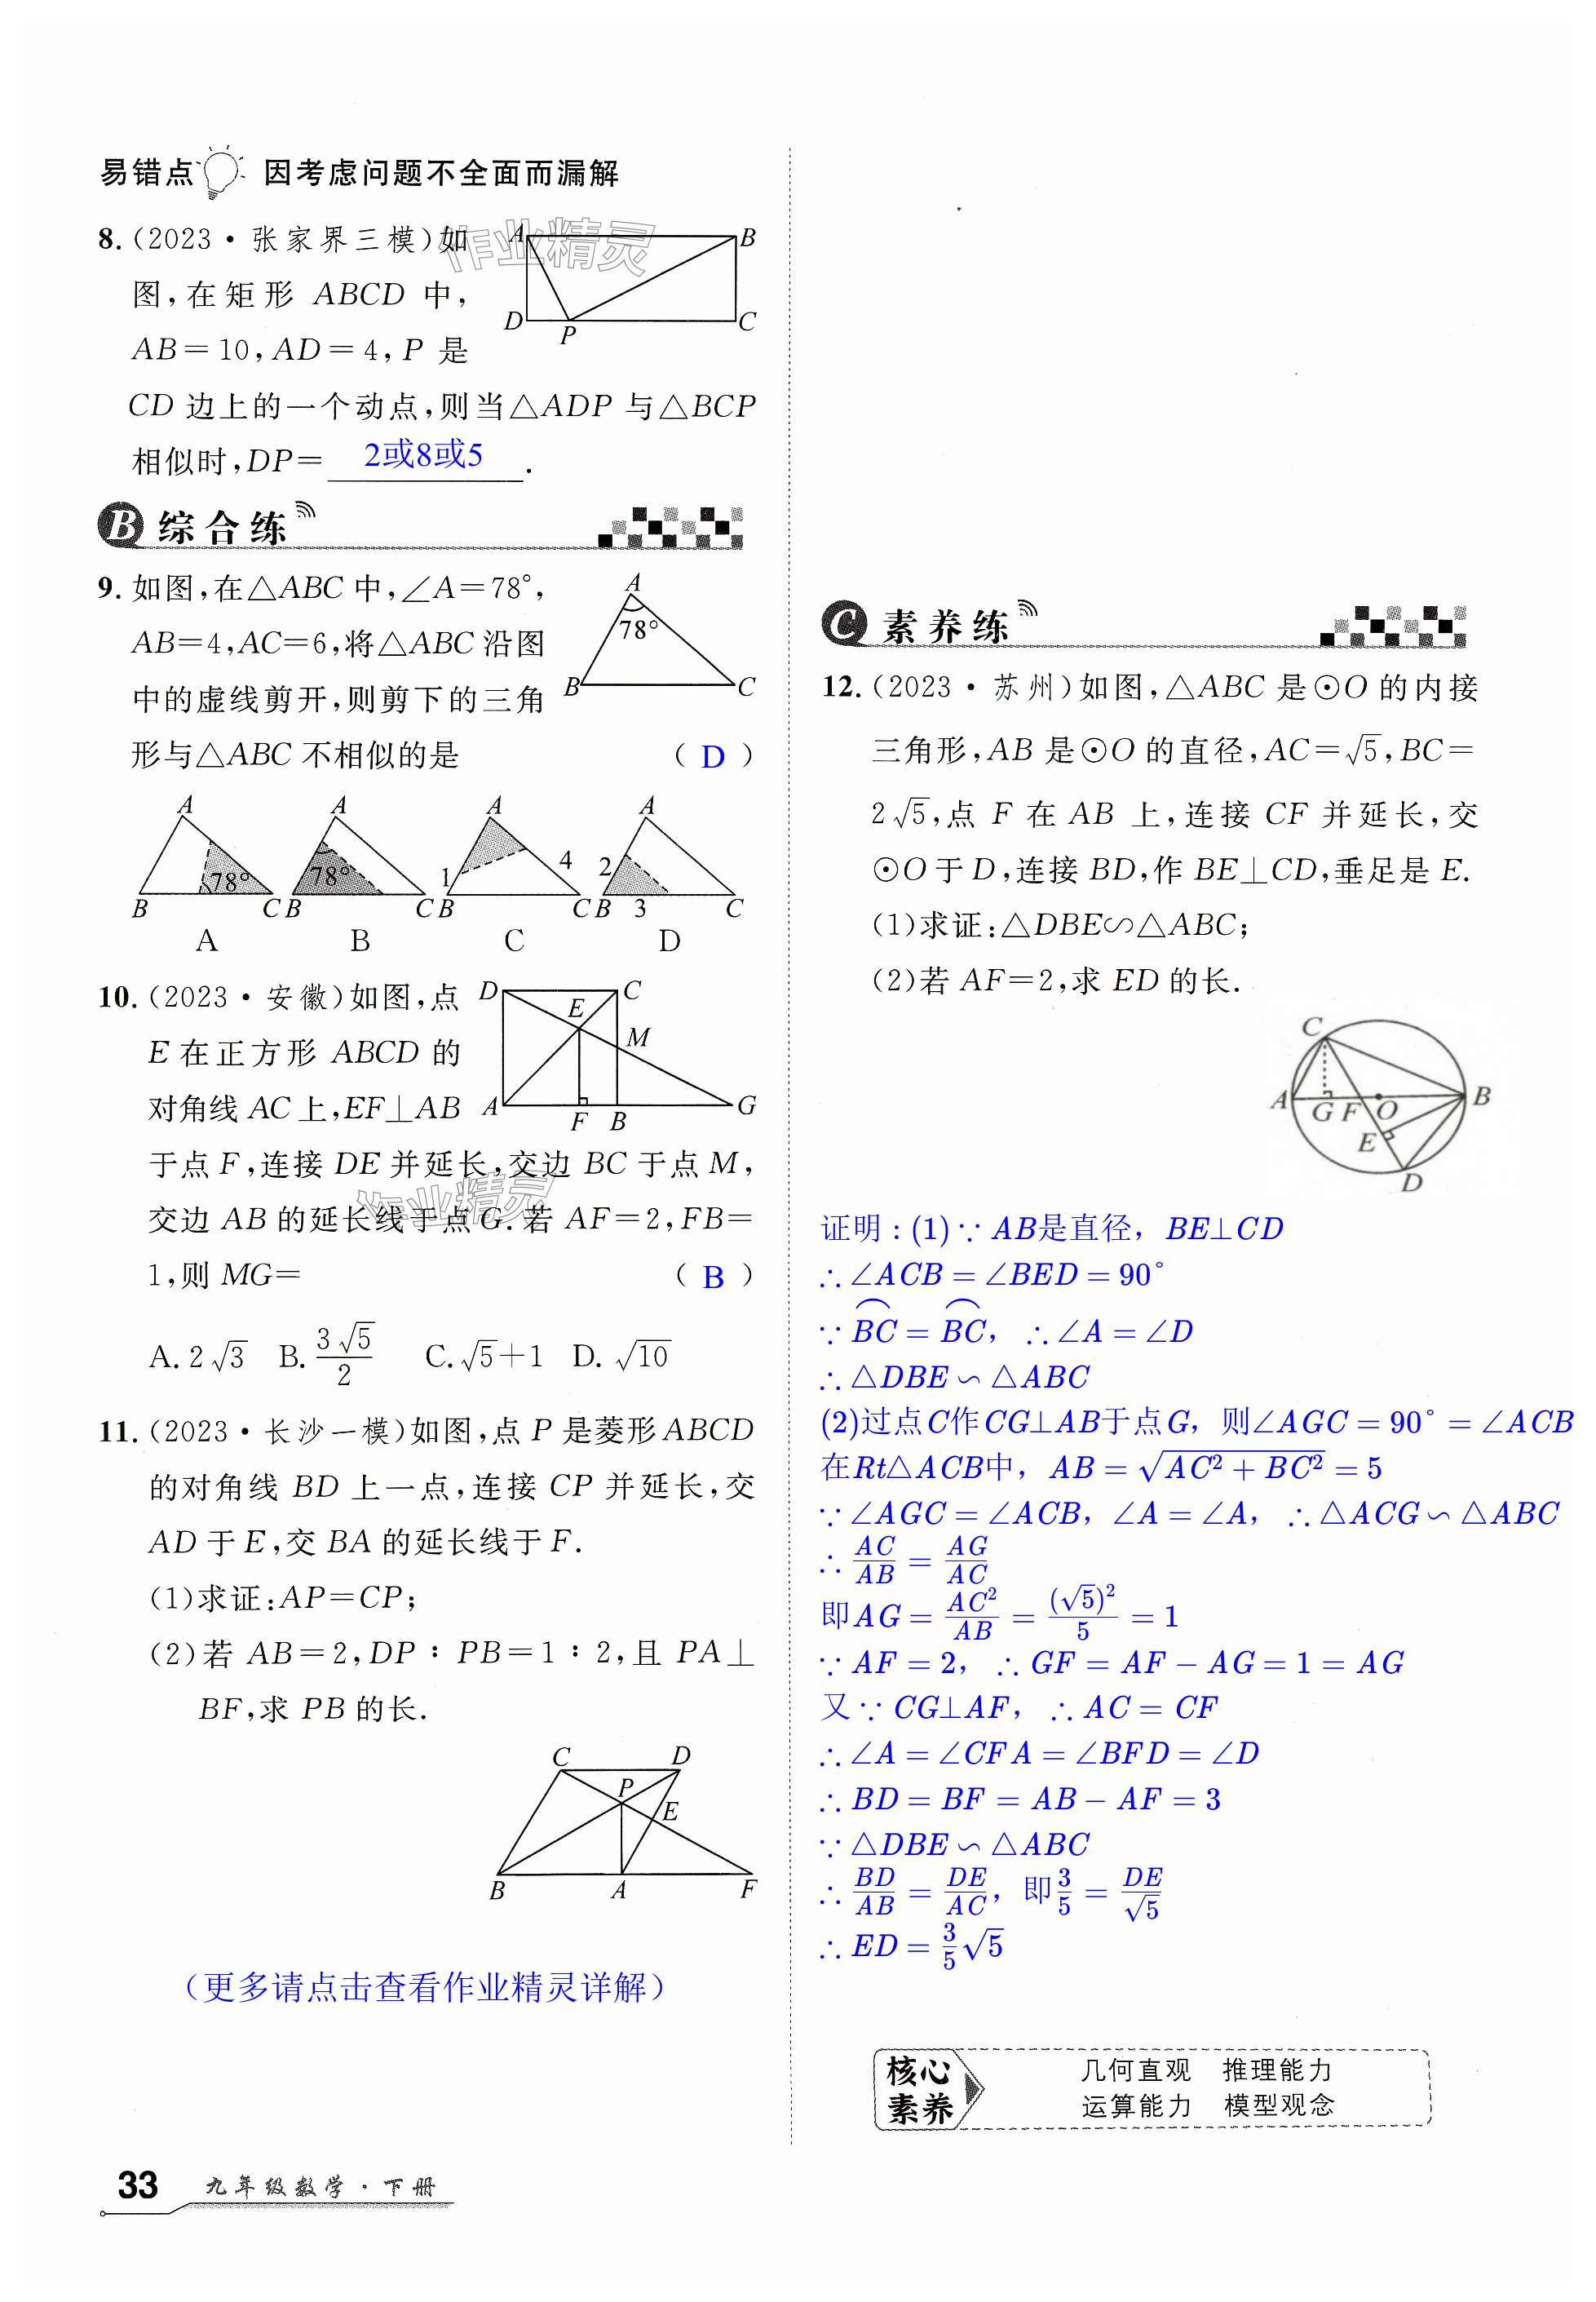 易错点 因考虑问题不全面而漏解
8.(2023·张家界三模)如
图,在矩形 ABCD 中,
AB=10,AD=4,P 是
CD 边上的一个动点,则当△ADP 与△BCP
相似时,DP= 2或8或5 .
A B
D P C
B 综合练
9. 如图,在△ABC 中,∠A=78°,
AB=4,AC=6,将△ABC 沿图
中的虚线剪开,则剪下的三角
形与△ABC 不相似的是 ( D )
A 78° B C
A A A A
78° 78° 1 4 2
B C B C B C B 3 C
A B C D
10.(2023·安徽)如图,点
E 在正方形 ABCD 的
对角线 AC 上,EF⊥AB
于点 F,连接 DE 并延长,交边 BC 于点 M,
交边 AB 的延长线于点 G. 若 AF=2,FB=
1,则 MG= ( B )
D C E M A F B G
A. 2√3 B. 3√5/2 C. √5+1 D. √10
11.(2023·长沙一模)如图,点 P 是菱形 ABCD
的对角线 BD 上一点,连接 CP 并延长,交
AD 于 E,交 BA 的延长线于 F.
(1)求证:AP=CP;
(2)若 AB=2,DP:PB=1:2,且 PA⊥
BF,求 PB 的长.
C D
P
E
B A F
(更多请点击查看作业精灵详解)
C 素养练
12.(2023·苏州)如图,△ABC 是⊙O 的内接
三角形,AB 是⊙O 的直径,AC=√5,BC=
2√5,点 F 在 AB 上,连接 CF 并延长,交
⊙O 于 D,连接 BD,作 BE⊥CD,垂足是 E.
(1)求证:△DBE∽△ABC;
(2)若 AF=2,求 ED 的长.
C
A G F O B
E
D
证明:(1)∵AB是直径,BE⊥CD
∴∠ACB=∠BED=90°
∵⌒BC=⌒BC,∴∠A=∠D
∴△DBE∽△ABC
(2)过点C作CG⊥AB于点G,则∠AGC=90°=∠ACB
在Rt△ACB中,AB=√(AC²+BC²)=5
∵∠AGC=∠ACB,∠A=∠A,∴△ACG∽△ABC
∴AC/AB=AG/AC
即AG=AC²/AB=(√5)²/5=1
∵AF=2,∴GF=AF-AG=1=AG
又∵CG⊥AF,∴AC=CF
∴∠A=∠CFA=∠BFD=∠D
∴BD=BF=AB-AF=3
∵△DBE∽△ABC
∴BD/AB=DE/AC,即3/5=DE/√5
∴ED=3/5√5
核心
素养
几何直观 推理能力
运算能力 模型观念
33 九年级数学·下册
作业精灵
作业精灵